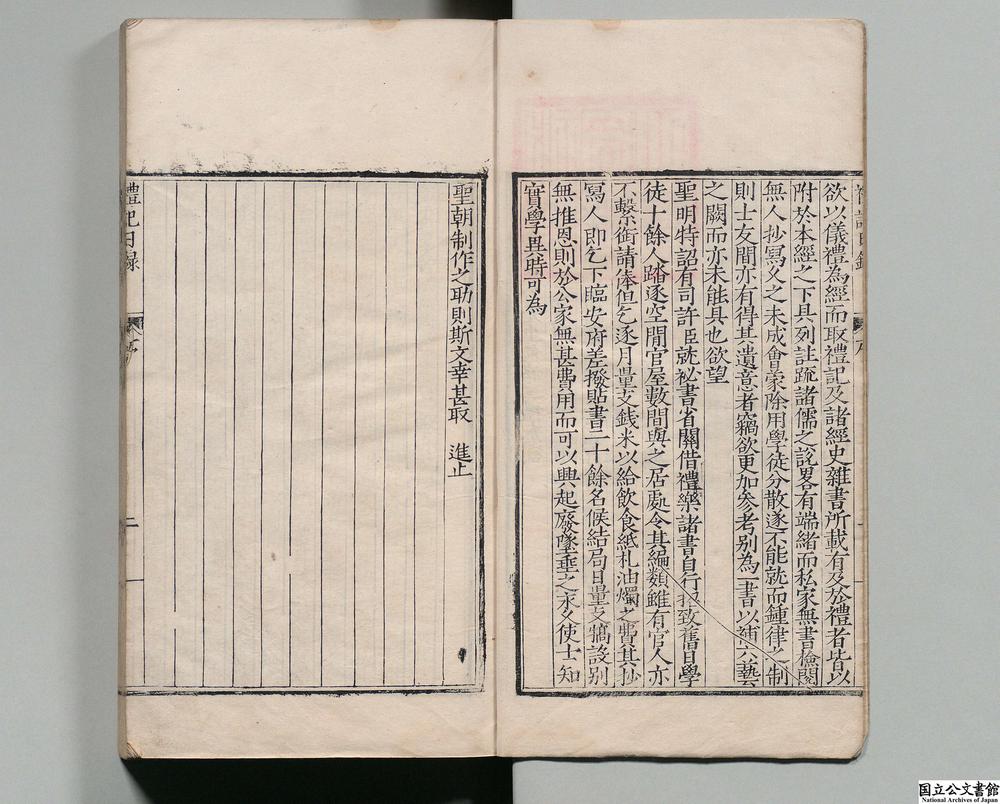 欲以儀禮為經而取禮記及諸經史雜書所載有及於禮者皆以
附於本經之下具列註疏諸儒之說畧有端緒而私家無書檢閱
無人抄寫久之未成會蒙除用學徒分散遂不能就而鍾律之制
則士友間亦有得其遺意者竊欲更加參考别為一書以補六藝
之闕而亦未能具也欲望
聖明特詔有司許臣就祕書省關借禮樂諸書自行招致舊日學
徒十餘人踏逐空閒官屋數間與之居處令其編類雖有官人亦
不繫銜請俸但乞逐月量支錢米以給飲食紙札油燭之費其抄
寫人即乞下臨安府差撥貼書二十餘名候結局日量支犒設别
無推恩則於公家無甚費用而可以興起廢墜垂之永久使士知
實學異時可為
聖朝制作之助則斯文幸甚取　進止
禮記目錄
序
二
国立公文書館
National Archives of Japan